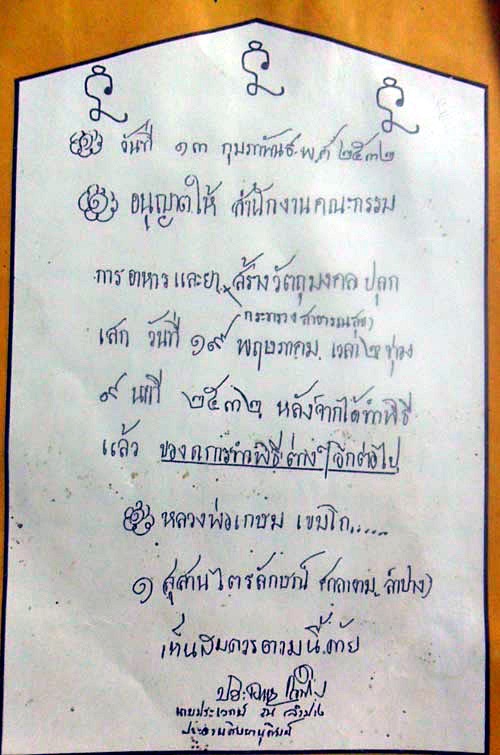 วันที่ ๑๓ กุมภาพันธ์ พ.ศ ๒๕๓๒
อนุญาตให้ สำนักงานคณะกรรม
การ อาหาร และยา สร้างวัตถุมงคล ปลุก
(กระทรวงสาธารณสุข)
เสก วันที่ ๑๙ พฤษภาคม เวลา ๒ ทุ่ม
๙ นาที ๒๕๓๒ หลังจากได้ทำพิธี
แล้ว ของดการทำพิธีต่างๆอีกต่อไป
หลวงพ่อเกษม เขมโก.....
๑ สุสานไตรลักษณ์ (ลำปาง)
เห็นสมควรตามนี้ด้วย
นายประเวทย์ ณ ลำปาง